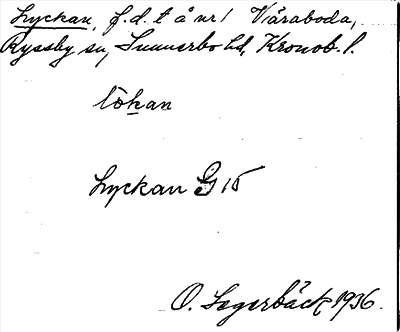 Lyckan, f.d. t å nr 1 Våraboda,
Ryssby sn, Sunnerbo hd, Kronob. l.
lökan
Lyckan G 15
O. Segerbäck 1936.